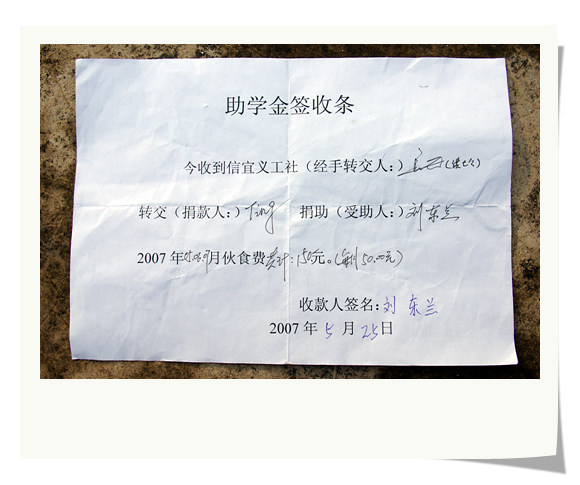 助学金签收条
今收到信宜义工社（经手转交人：）
转交（捐款人：）Ting 捐助（受助人：）刘东兰
2007年05.06.07月伙食费共计：150元。（每月50.00元）
收款人签名：刘东兰
2007年5月25日